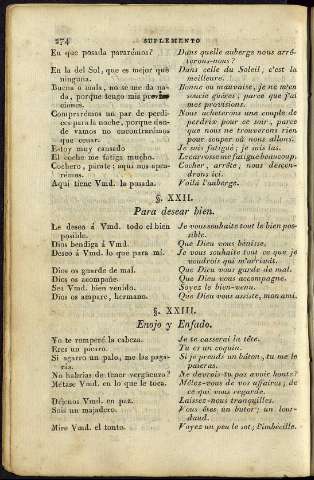 274 SUPLEMENTO
En que posada pararémos? Dans quelle auberge nous arrê-
terons-nous?
En la del Sol, es mejor que Dans celle du Soleil, c'est la
ninguna. meilleure.
Buena o mala, no se me da na- Bonne ou mauvaise, je ne m'en
da, porque tengo mis provi- soucie guères; parce que j'ai
ciones. mes provisions.
Comprarémos un par de perdi- Nous acheterons une couple de
ces para la noche, porque don- perdrix pour ce soir, parce
de vamos no encontrarémos que nous ne trouverons rien
que cenar. pour souper où nous allons.
Estoy muy cansado Je suis fatigué; je suis las.
El coche me fatiga mucho. Le carrosse me fatigue beaucoup.
Cochero, párate; aqui nos apea- Cocher, arrête, nous descen-
rémos. drons ici.
Aqui tiene Vmd. la posada. Voilà l'auberge.
§. XXII.
Para desear bien.
Le deseo á Vmd. todo el bien Je vous souhaite tout le bien pos-
posible. sible.
Dios bendiga á Vmd. Que Dieu vous bénisse.
Deseo á Vmd. lo que para mí. Je vous souhaite tout ce que je
voudrois qui m'arrivât.
Dios os guarde de mal. Que Dieu vous garde de mal.
Dios os acompañe. Que Dieu vous accompagne.
Sea Vmd. bien venido. Soyez le bien-venu.
Dios os ampare, hermano. Que Dieu vous assiste, mon ami.
§. XXIII.
Enojo y Enfado.
Yo te romperé la cabeza. Je te casserai la tête.
Eres un pícaro. Tu er un coquin.
Si agarro un palo, me las paga- Si je prends un bâton, tu me le
rás. paseras.
No habrias de tener vergüenza? Ne devrois-tu pas avoir honte?
Métase Vmd. en lo que le toca. Mêlez-vous de vos affaires; de
ce qui vous regarde.
Déjenos Vmd. en paz. Laissez-nous tranquilles.
Sois un majadero. Vous êtes un butor; un lour-
daud.
Mire Vmd. el tonto. Voyez un peu le sot; l'imbécille.